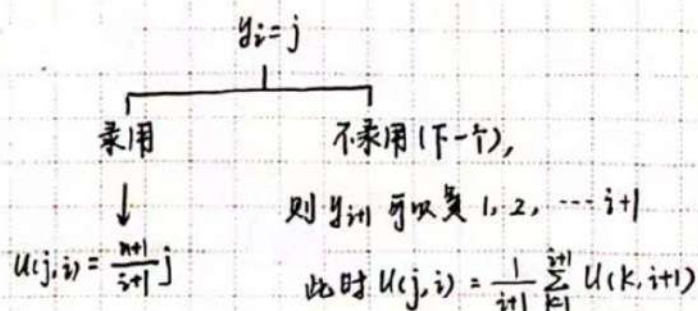 y_i = j
录用
不录用 (下一个),
↓
则 y_{i+1} 可以是 1, 2, ⋯ i+1
u(j,i) = \frac{n+1}{i+1} j
此时 U(j,i) = \frac{1}{i+1} \sum_{k=1}^{i+1} U(k, i+1)